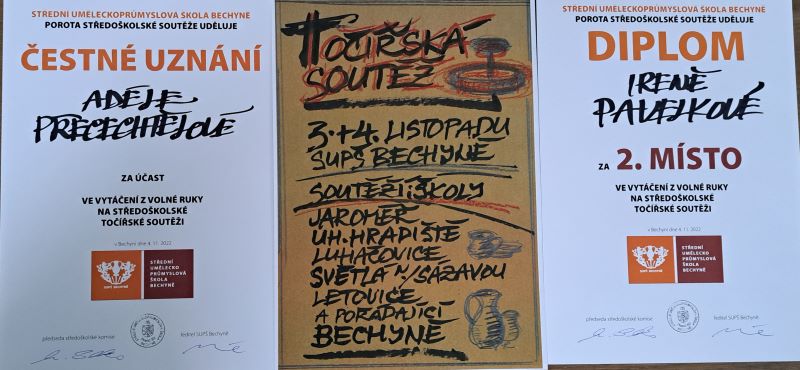 STŘEDNÍ UMĚLECKOPRŮMYSLOVÁ ŠKOLA BECHYNĚ
POROTA STŘEDOŠKOLSKÉ SOUTĚŽE UDĚLUJE
ČESTNÉ UZNÁNÍ
ADÉLE
PŘECECHTĚLOVÉ
ZA ÚČAST
VE VYTÁČENÍ Z VOLNÉ RUKY
NA STŘEDOŠKOLSKÉ
TOČÍŘSKÉ SOUTĚŽI
v Bechyni dne 4. 11. 2022
SUPŠ BECHYNĚ
STŘEDNÍ
UMĚLECKO
PRŮMYSLOVÁ
ŠKOLA
BECHYNĚ
předseda středoškolské komise
ředitel SUPŠ Bechyně
TOČÍŘSKÁ
SOUTĚŽ
3.+4. LISTOPADU
SUPŠ BECHYNĚ
SOUTĚŽÍ ŠKOLY
JAROMĚŘ
UH. HRADIŠTĚ
LUHAČOVICE
SVĚTLÁ N/SÁZAVOU
LETOVICE
A POŘÁDAJÍCÍ
BECHYNĚ
STŘEDNÍ UMĚLECKOPRŮMYSLOVÁ ŠKOLA BECHYNĚ
POROTA STŘEDOŠKOLSKÉ SOUTĚŽE UDĚLUJE
DIPLOM
IRENĚ
PAVELKOVÉ
ZA 2. MÍSTO
VE VYTÁČENÍ Z VOLNÉ RUKY
NA STŘEDOŠKOLSKÉ
TOČÍŘSKÉ SOUTĚŽI
v Bechyni dne 4. 11. 2022
SUPŠ BECHYNĚ
STŘEDNÍ
UMĚLECKO
PRŮMYSLOVÁ
ŠKOLA
BECHYNĚ
předseda středoškolské komise
ředitel SUPŠ Bechyně